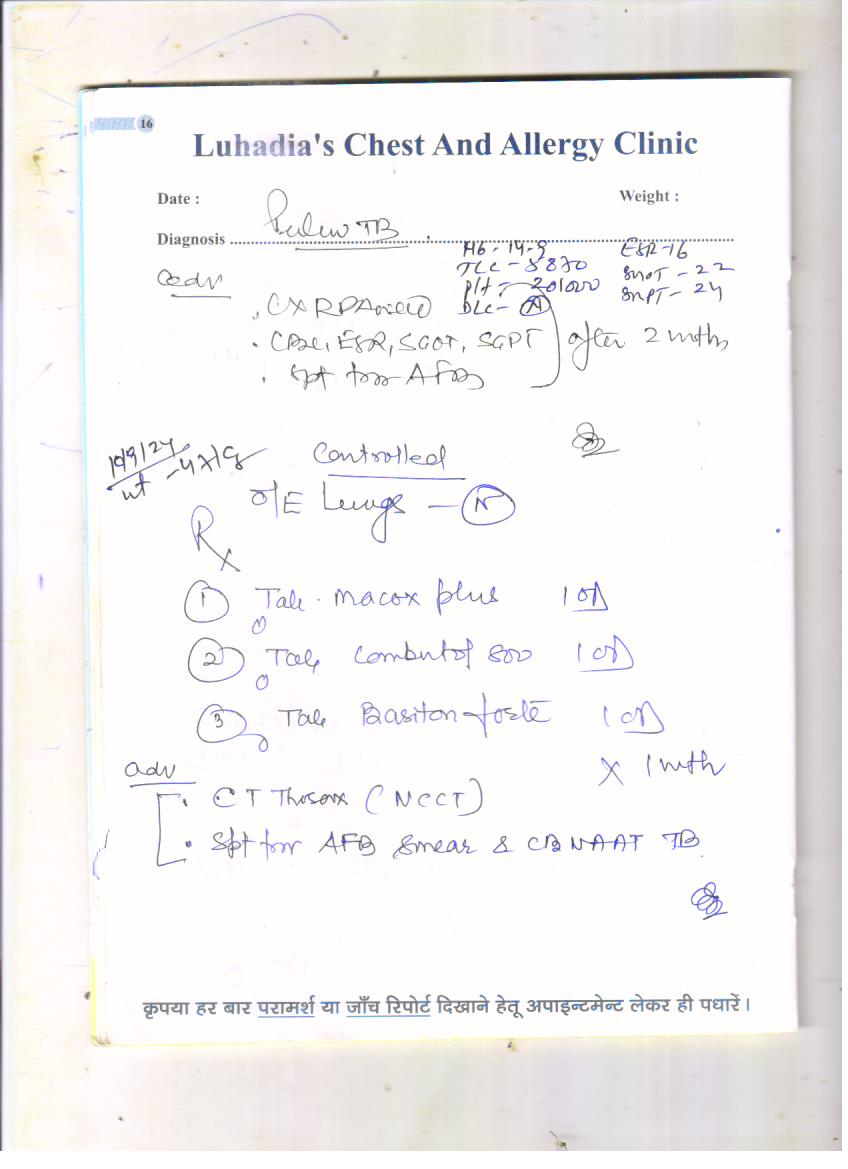 16
Luhadia's Chest And Allergy Clinic
Date :
Weight :
Diagnosis TB
Hb - 14.9
ESR - 16
TLC - 8870
SGOT - 22
Plt - 201000
SGPT - 24
DLC - N
Adv
CXR PA
CBC, ESR, SGOT, SGPT
Spt for AFB
after 2 mths
wt
Controlled
O/E Lungs - N
Rx
1 Tab. Macox plus 1 OD
2 Tab Combutol 800 1 OD
3 Tab Basiton-forte 1 OD
X 1 mth
Adv
CT Thorax (NCCT)
Spt for AFB Smear & CBNAAT TB
कृपया हर बार परामर्श या जाँच रिपोर्ट दिखाने हेतू अपाइन्टमेन्ट लेकर ही पधारें।